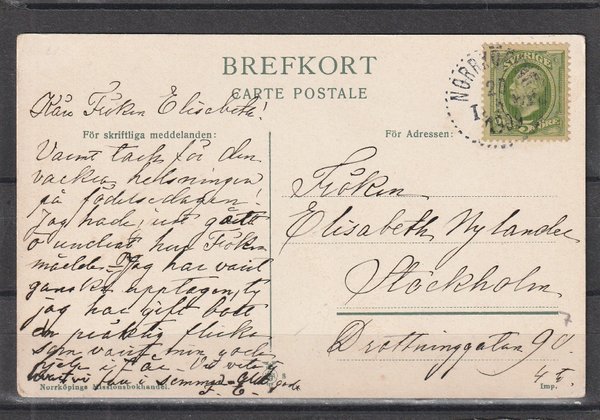 BREFKORT
CARTE POSTALE
Kära Fröken Elisabeth!
För skriftliga meddelanden:
Varmt tack för den
vackra helsningen
på födelsedagen!
Jag hade just gått
o undrat hur Fröken
mådde. Jag har varit
ganska upptagen, ty
jag har gift bort
en präktig flicka
som varit min goda
hjelp i år.
Norrköpings Missionsbokhandel.
För Adressen:
Fröken
Elisabeth Nylander
Stockholm
Drottninggatan 90
4 tr.
Imp.
SVERIGE
5